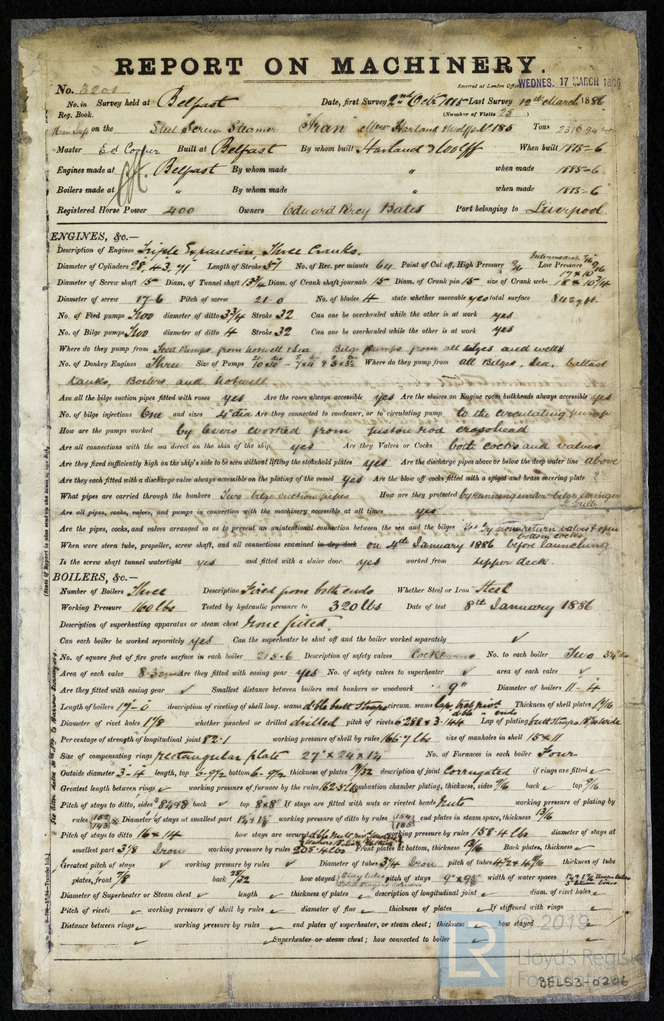 REPORT ON MACHINERY.
No. 3201 Received at London Office WEDNES. 17 MARCH 1886
No. in Survey held at Belfast Date, first Survey 2nd Octr 1885 Last Survey 12th March 1886
Reg. Book. (Number of Visits 25)
on the Steel Screw Steamer Iran Messrs Harland & Wolffs No 185 Tons
Master Ed Copper Built at Belfast By whom built Harland & Wolff When built 1885-6
Engines made at Belfast By whom made " when made 1885-6
Boilers made at " By whom made " when made 1885-6
Registered Horse Power 400 Owners Edward Percy Bates Port belonging to Liverpool
ENGINES, &c.—
Description of Engines Triple Expansion, Three Cranks.
Diameter of Cylinders 28, 43, 71 Length of Stroke 57 No. of Rev. per minute 64 Point of Cut off, High Pressure Low Pressure
Diameter of Screw shaft 15 Diam. of Tunnel shaft 13 3/4 Diam. of Crank shaft journals 15 Diam. of Crank pin 15 size of Crank webs
Diameter of screw 17-6 Pitch of screw 21-0 No. of blades 4 state whether moveable yes total surface 84 sq ft.
No. of Feed pumps Two diameter of ditto 3 3/4 Stroke 32 Can one be overhauled while the other is at work yes
No. of Bilge pumps Two diameter of ditto 4 Stroke 32 Can one be overhauled while the other is at work yes
Where do they pump from Feed Pumps from hotwell & Sea, Bilge pumps from all bilges and wells
No. of Donkey Engines Three Size of Pumps Where do they pump from all Bilges, Sea, ballast
tanks, Boilers and hotwell
Are all the bilge suction pipes fitted with roses yes Are the roses always accessible yes Are the sluices on Engine room bulkheads always accessible yes
No. of bilge injections One and sizes 4" dia Are they connected to condenser, or to circulating pump to the circulating pump
How are the pumps worked by levers worked from piston rod crosshead
Are all connections with the sea direct on the skin of the ship yes Are they Valves or Cocks both cocks and valves
Are they fixed sufficiently high on the ship's side to be seen without lifting the stokehold plates yes Are the discharge pipes above or below the deep water line above
Are they each fitted with a discharge valve always accessible on the plating of the vessel yes Are the blow off cocks fitted with a spigot and brass covering plate
What pipes are carried through the bunkers Two bilge suction pipes How are they protected by running under bilge stringer
Are all pipes, cocks, valves, and pumps in connection with the machinery accessible at all times yes
Are the pipes, cocks, and valves arranged so as to prevent an unintentional connection between the sea and the bilges yes by nonreturn valves &
bottom cocks
When were stern tube, propeller, screw shaft, and all connections examined in dry dock on 4th January 1886 before launching
Is the screw shaft tunnel watertight yes and fitted with a sluice door yes worked from upper deck
BOILERS, &c.—
Number of Boilers Three Description Fired from both ends Whether Steel or Iron Steel
Working Pressure 160 lbs Tested by hydraulic pressure to 320 lbs Date of test 8th January 1886
Description of superheating apparatus or steam chest None fitted.
Can each boiler be worked separately yes Can the superheater be shut off and the boiler worked separately ✓
No. of square feet of fire grate surface in each boiler 215.6 Description of safety valves Cockburns No. to each boiler Two
Area of each valve Are they fitted with easing gear yes No. of safety valves to superheater ✓ area of each valve ✓
Are they fitted with easing gear ✓ Smallest distance between boilers and bunkers or woodwork 9" Diameter of boilers 11-4
Length of boilers 17-0 description of riveting of shell long. seams dble butt straps circum. seams Thickness of shell plates
Diameter of rivet holes 1 1/8 whether punched or drilled drilled pitch of rivets 6.288 & 3.144 Lap of plating
Percentage of strength of longitudinal joint 82.1 working pressure of shell by rules 166.7 lbs size of manholes in shell 15 x 11
Size of compensating rings rectangular plate No. of Furnaces in each boiler Four
Outside diameter 3-4 length, top 6-9 1/2 bottom 6-9 1/2 thickness of plates description of joint Corrugated if rings are fitted ✓
Greatest length between rings ✓ working pressure of furnace by the rules combustion chamber plating, thickness, sides back ✓ top
Pitch of stays to ditto, sides back ✓ top 8x8 If stays are fitted with nuts or riveted heads Nuts working pressure of plating by
rules Diameter of stays at smallest part working pressure of ditto by rules end plates in steam space, thickness
Pitch of stays to ditto 16 x 14 how stays are secured working pressure by rules 158.4 lbs diameter of stays at
smallest part 3 1/8 Iron working pressure by rules Front plates at bottom, thickness Back plates, thickness ✓
Greatest pitch of stays ✓ working pressure by rules ✓ Diameter of tubes 3 1/4 Iron pitch of tubes thickness of tube
plates, front 7/8 back how stayed Stay tubes pitch of stays width of water spaces
Diameter of Superheater or Steam chest ✓ length ✓ thickness of plates ✓ description of longitudinal joint ✓ diam. of rivet holes ✓
Pitch of rivets ✓ working pressure of shell by rules ✓ diameter of flue ✓ thickness of plates ✓ If stiffened with rings ✓
Distance between rings ✓ working pressure by rules ✓ end plates of superheater, or steam chest; thickness how stayed
Superheater or steam chest; how connected to boiler ✓
© 2019
LR Lloyd's Register
Foundation
BELS3-0206